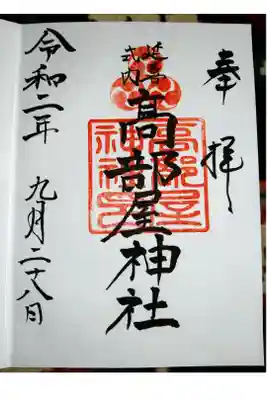 奉拝
延喜
式内
高部屋神社
令和二年 九月二十八日